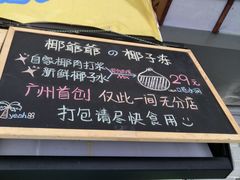 椰爺爺の椰子冻
自家椰肉打浆
新鮮椰子水
29元
广州首创 仅此一间无分店
打包请尽快食用
yeah